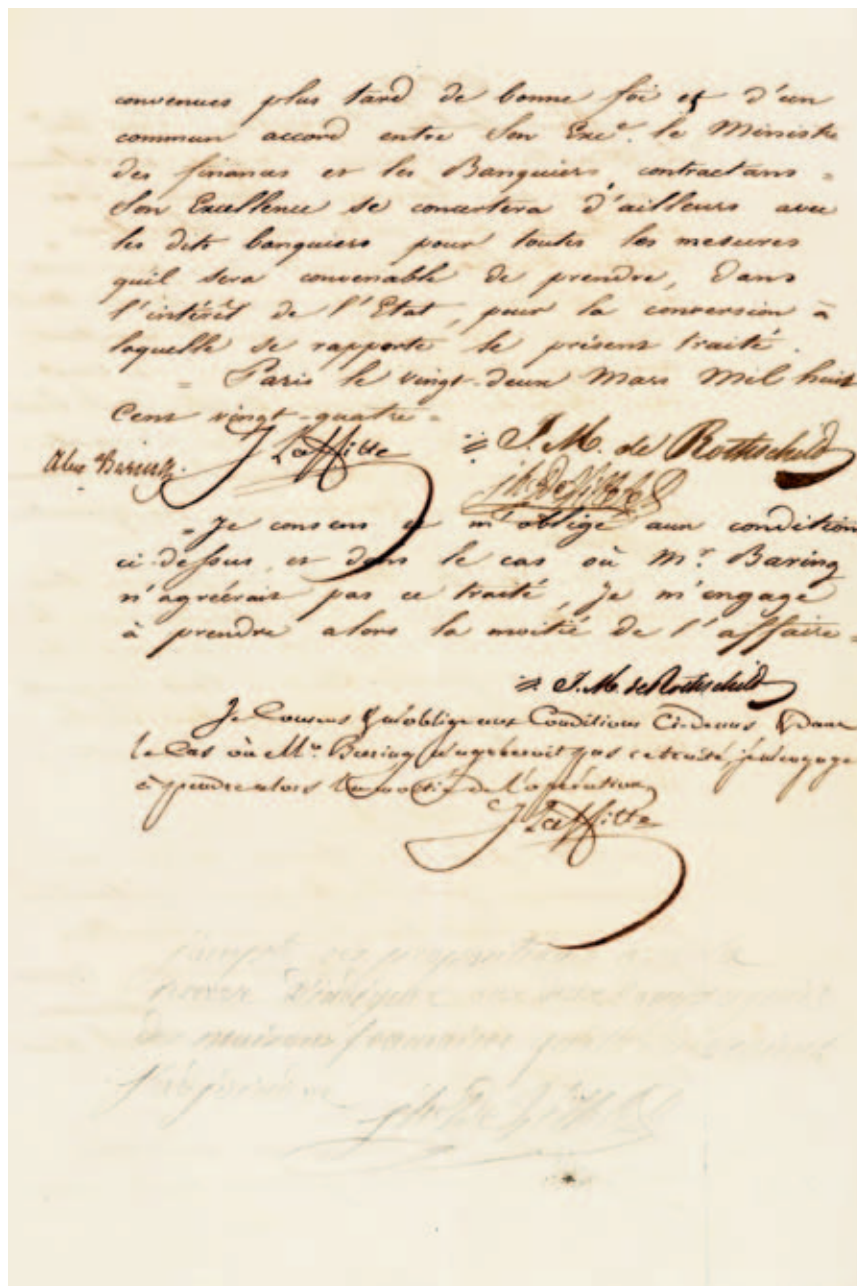 convenues plus tard de bonne foi et d'un
commun accord entre Son Exce. le Ministre
des finances et les Banquiers contractans =
Son Excellence se concertera d'ailleurs avec
les dits banquiers pour toutes les mesures
quil sera convenable de prendre, dans
l'intérêt de l'Etat, pour la conversion à
laquelle se rapporte le présent traité.
= Paris le vingt-deux Mars Mil huit
Cent vingt-quatre =
Alex Baring. J Laffitte J. M. de Rothschild
Jh de Villèle
= Je consens et m'oblige aux conditions
ci-dessus, et dans le cas où Mr. Baring
n'agréerait pas ce traité, je m'engage
à prendre alors la moitié de l'affaire =
J. M. de Rothschild
Je Consens & m'oblige aux Conditions Ci-dessus & dans
le Cas où Mr. Baring n'agréeroit pas ce traité, je m'engage
à prendre alors la moitié de l'opération
J Laffitte